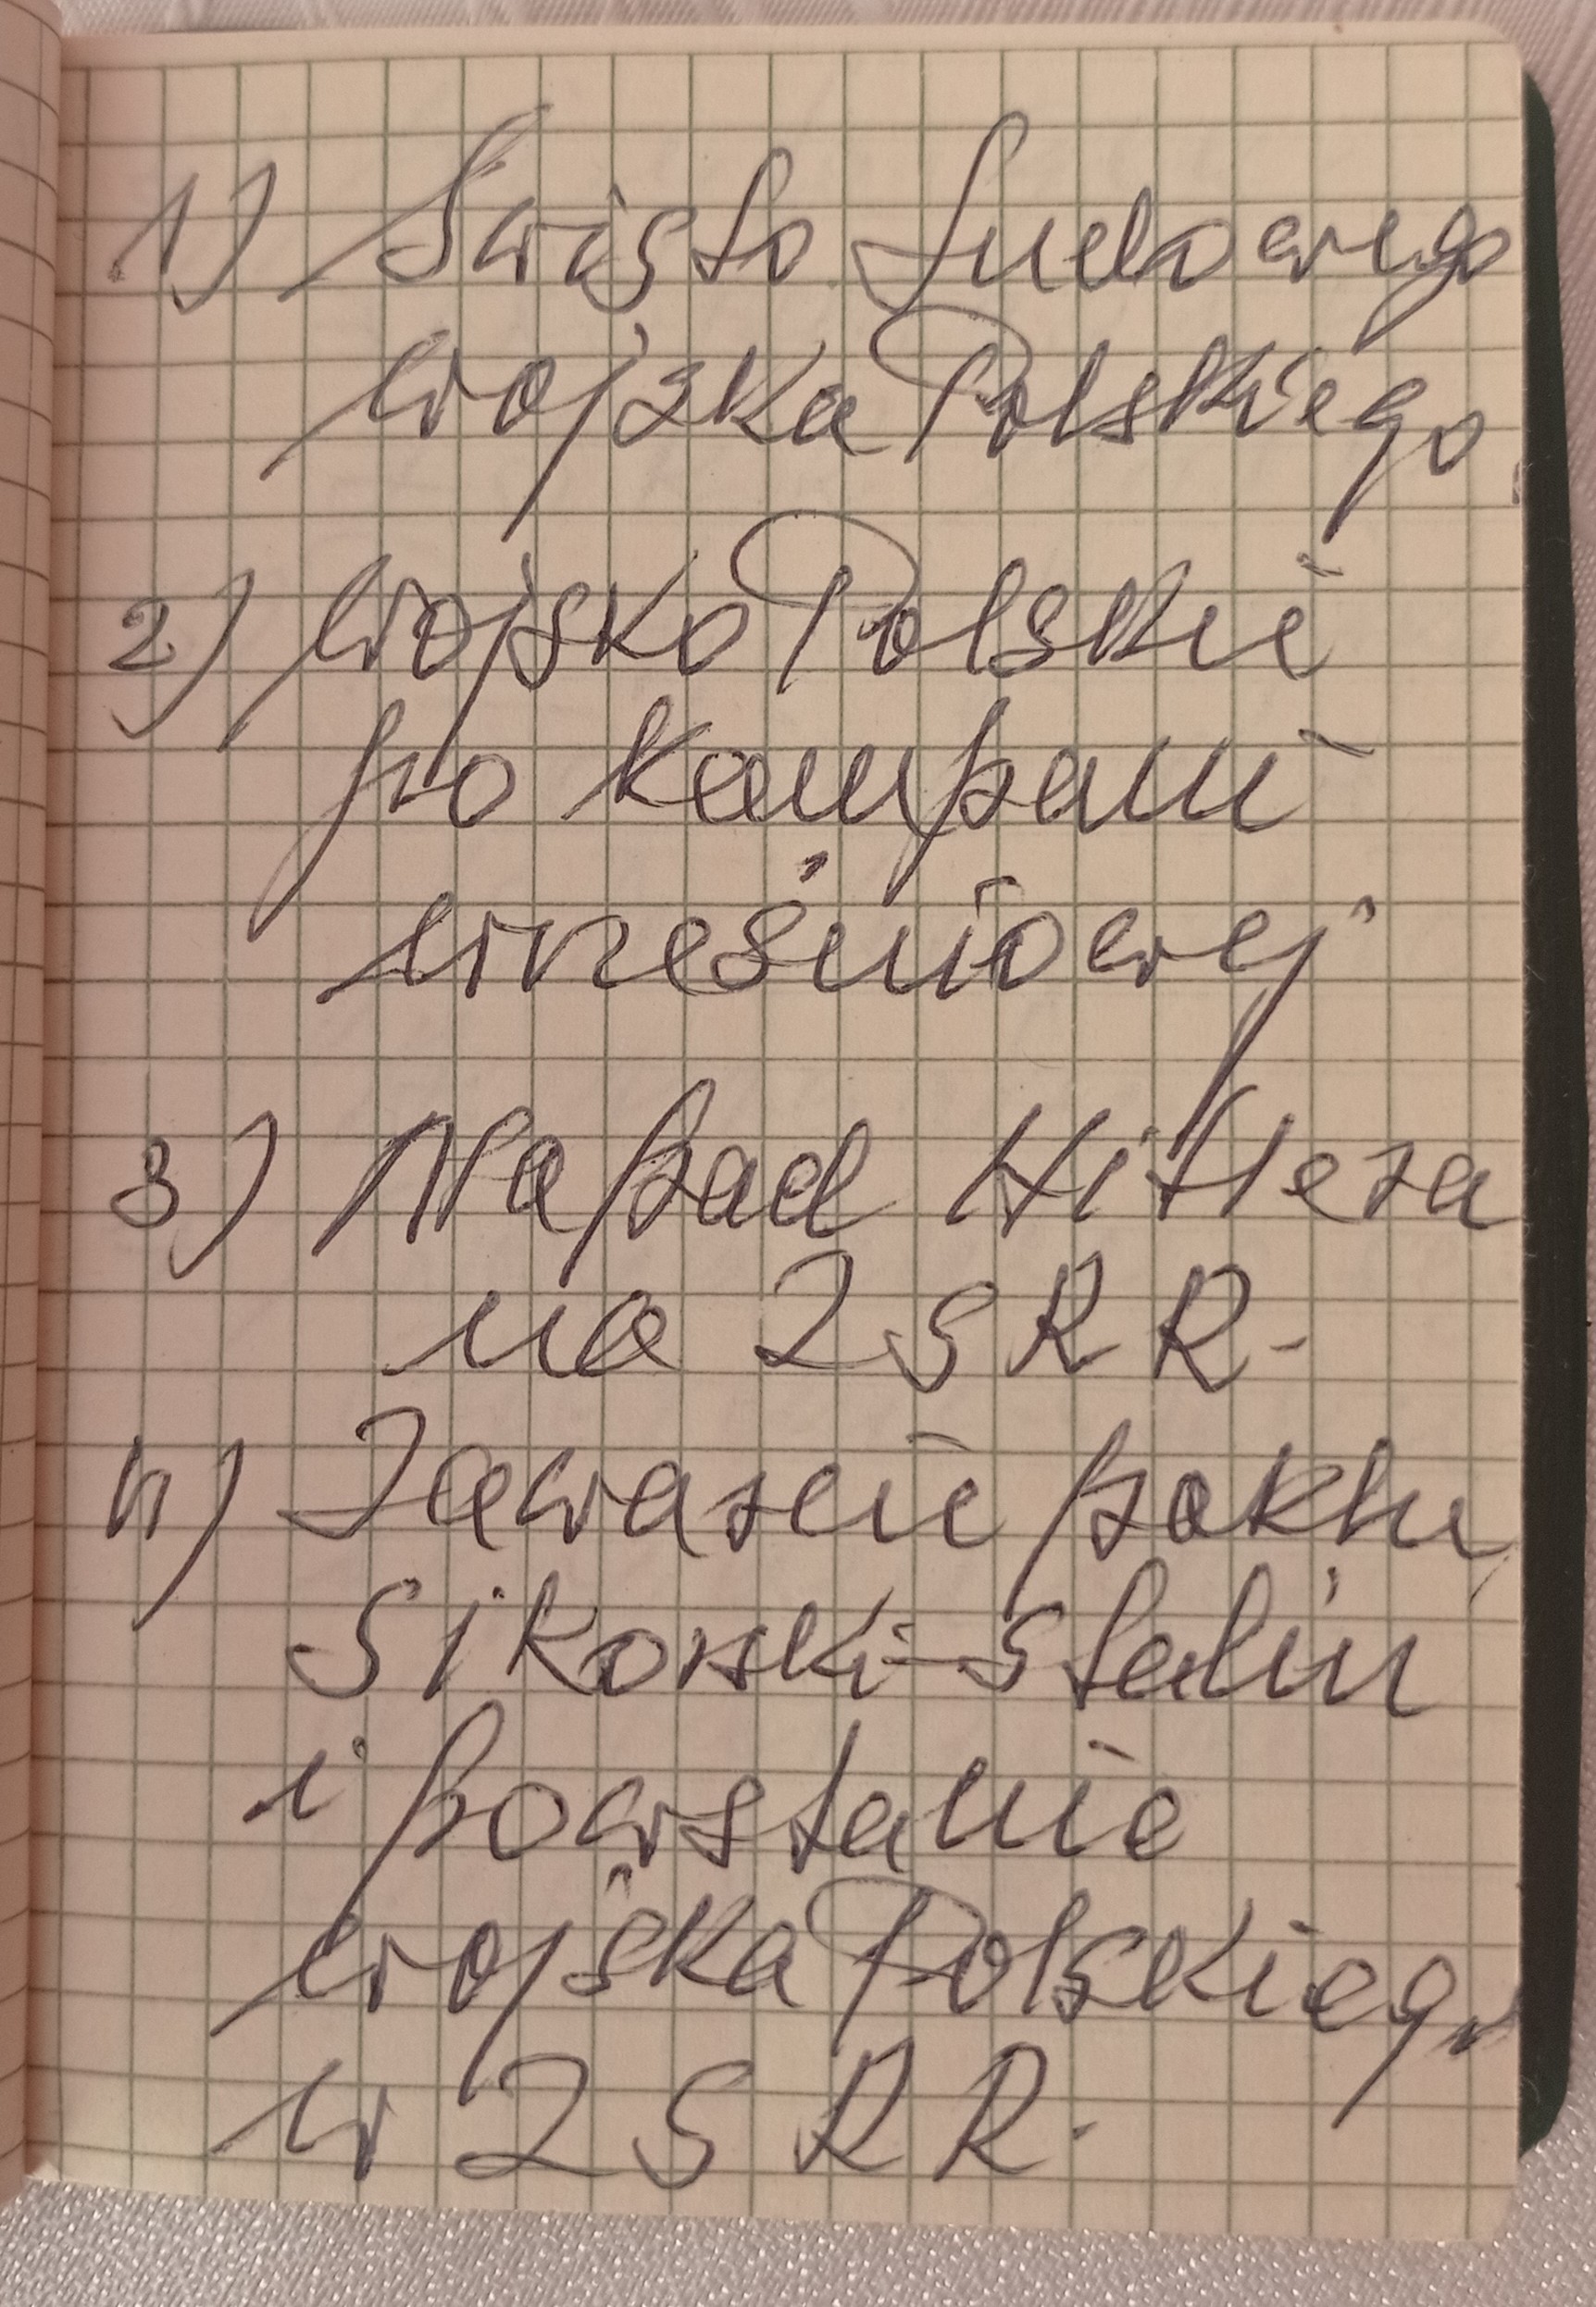 1) Święto Ludowego
Wojska Polskiego
2) Wojsko Polskie
po kampanii
wrześniowej
3) Napad Hitlera
na ZSRR.
4) Zawarcie paktu
Sikorski-Stalin
i powstanie
Wojska Polskiego
w ZSRR.